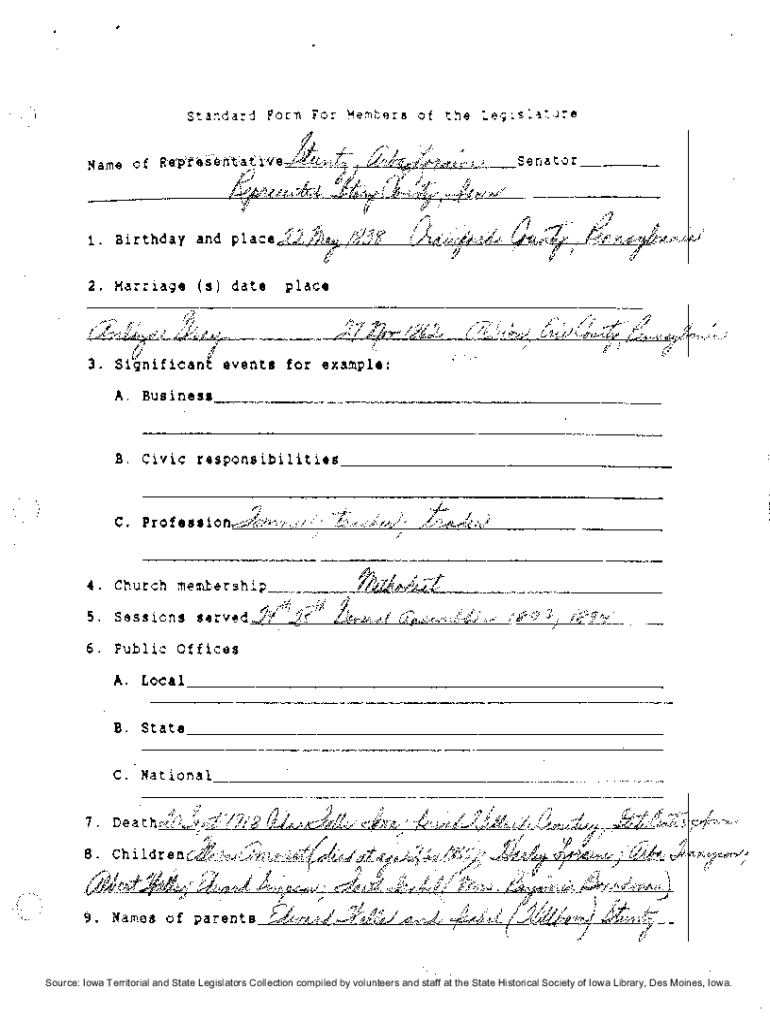 Standard Form For Members of the Legislature
Name of Representative Stuntz, Arba Loraine Senator
Represented Story County, Iowa
1. Birthday and place 22 May 1838 Crawford County, Pennsylvania
2. Marriage (s) date place
Gray 27 Nov 1862 Albion, Erie County, Pennsylvania
3. Significant events for example:
A. Business
B. Civic responsibilities
C. Profession Farmer; teacher; trader
4. Church membership Methodist
5. Sessions served 24th 25th General Assemblies 1892, 1894
6. Public Offices
A. Local
B. State
C. National
7. Death 20 Sept 1918 Iowa; buried Cemetery, Iowa
8. Children (died at age in); Harley Loraine; Arba
Albert; Edward Simpson; Sarah Isabel (Mrs. Benjamin Boardman)
9. Names of parents Edward and Isabel (Wellborn) Stuntz
Source: Iowa Territorial and State Legislators Collection compiled by volunteers and staff at the State Historical Society of Iowa Library, Des Moines, Iowa.